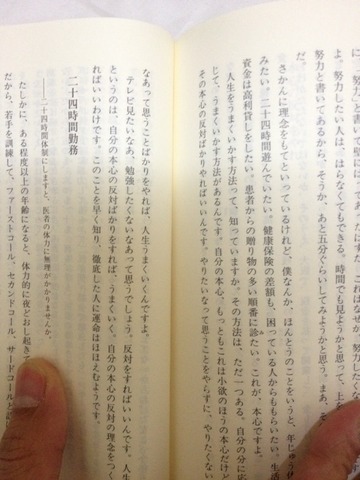 よ。努力したい人は、はらなくてもできる。時間でも見ようかと思って、上を
努力と書いてあるから、そうか、あと五分ぐらいしてみようかと思う。まあ、そ
だ。
さかんに理念をもてといっているけれど、僕なんか、ほんとうのことをいうと、年じゅう
みたい。二十四時間遊んでいたい。健康保険の差額も、困っている人からももらいたい。生活
資金は高利貸しをしたい。患者からの贈り物の多い順番に診たい。これが、本心ですよ。
人生をうまくいかす方法って、知っていますか。その方法は、ただ一つある。自分の分に応
じて、うまくいかす方法があるんです。自分の本心、もっともこれは小欲のほうの本心だけど
その本心の反対ばかりやればいいんです。やりたいなって思うことをやらずに、やりたくない
なあって思うことばかりをやれば、人生うまくいくんですよ。
テレビ見たいなあ、勉強したくないなあって思うでしょう。反対をすればいいんです。
というのは、自分の本心の反対ばかりをすれば、うまくいく。自分の本心の反対の理念をつく
ればいいわけです。このことを早く知り、徹底した人に運命はほほえむようです。
二十四時間勤務
――二十四時間体制にしますと、医者の体力に無理がかかりませんか。
たしかに、ある程度以上の年齢になると、体力的に夜どおし起きて
だから、若手を訓練して、ファーストコール、セカンドコール、サードコールと